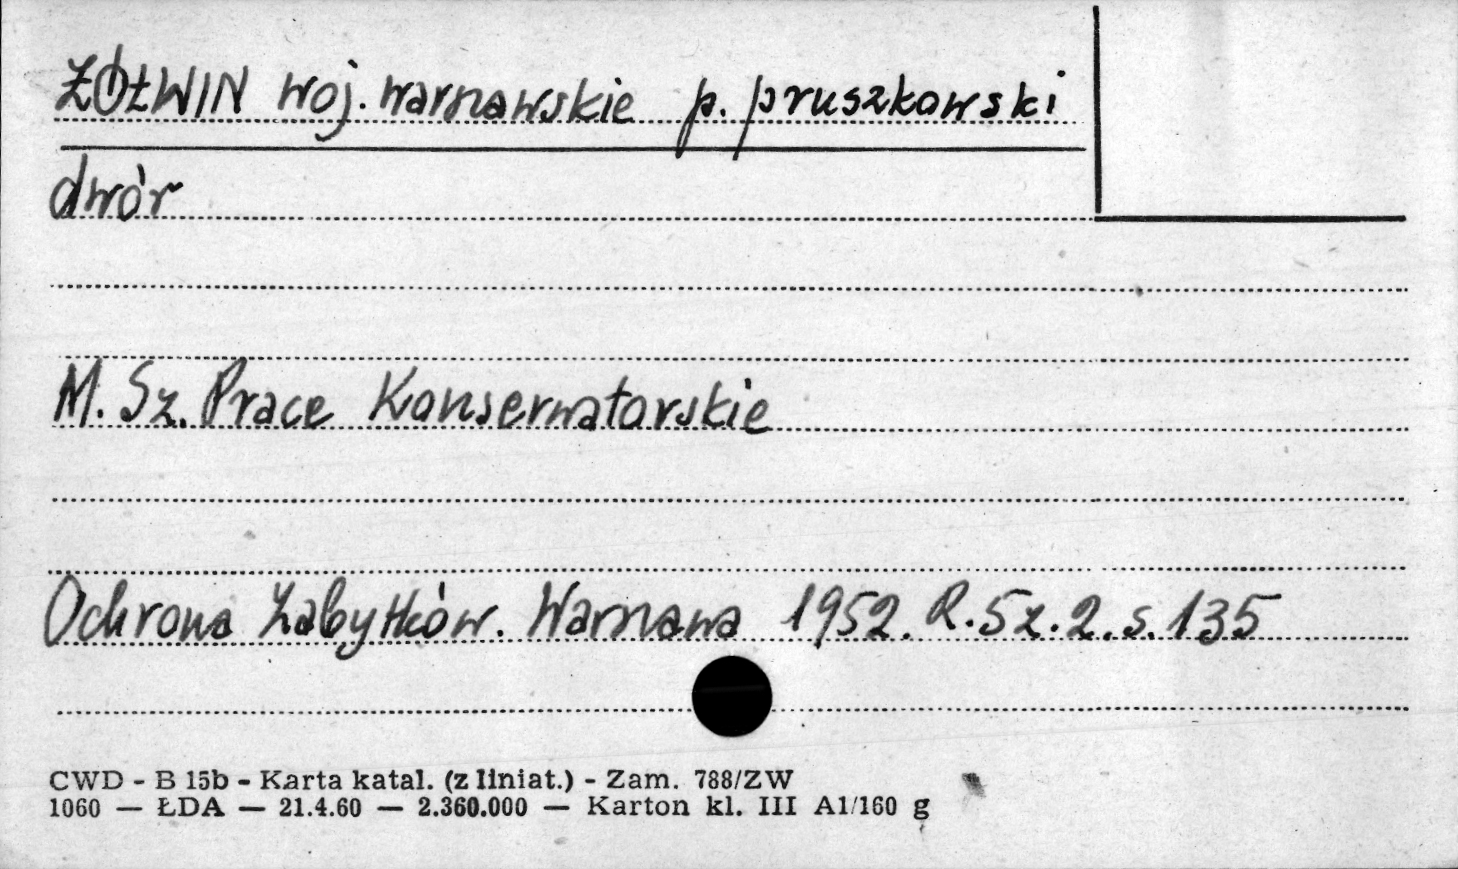 ŻÓŁWIN woj. warszawskie p. pruszkowski
dwór
M. Sz. Prace Konserwatorskie
Ochrona Zabytków. Warszawa 1952. R. 5 z. 2. s. 135
CWD - B 15b - Karta katal. (z liniat.) - Zam. 788/ZW
1060 — ŁDA — 21.4.60 — 2.360.000 — Karton kl. III A1/160 g